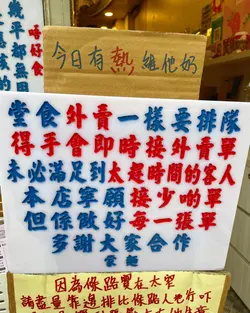 唔好食
幾乎都無
今日有熱維他奶
堂食外賣一樣要排隊
得手會即時接外賣單
未必滿足到太趕時間的客人
本店寧願接少啲單
但係做好每一張單
多謝大家合作
因為條路實在太窄
請盡量靠邊排比條路人地行吓